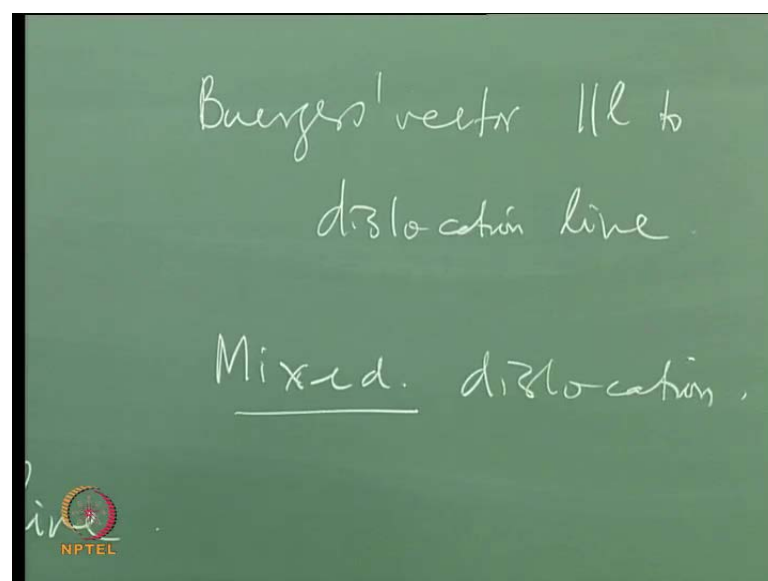 Buergers' vector ||l to
dislocation line.
Mixed. dislocation.
line.
NPTEL